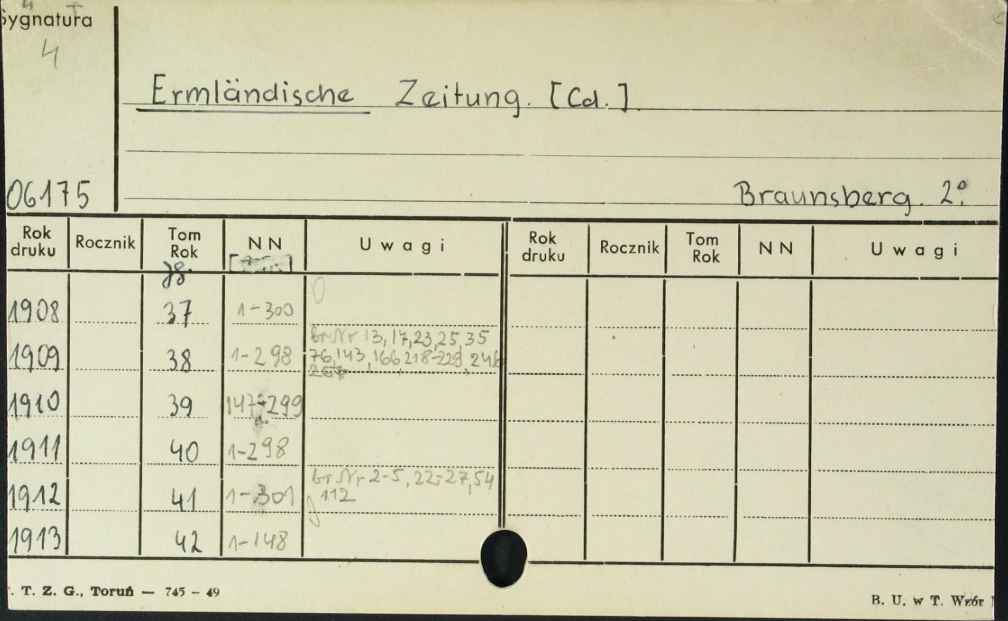 Sygnatura
4
Ermländische Zeitung. [Cd.]
06175
Braunsberg. 2°.
Rok druku Rocznik Tom Rok NN Uwagi Rok druku Rocznik Tom Rok NN Uwagi
Jg.
1908 37 1-300
br. Nr 13, 17, 23, 25, 35
1909 38 1-298 76, 143, 166, 218-229, 246
1910 39 147-299
1911 40 1-298
br. Nr 2-5, 22-27, 54
1912 41 1-301 112
1913 42 1-148
. T. Z. G., Toruń — 745 - 49
B. U. w T. Wzór